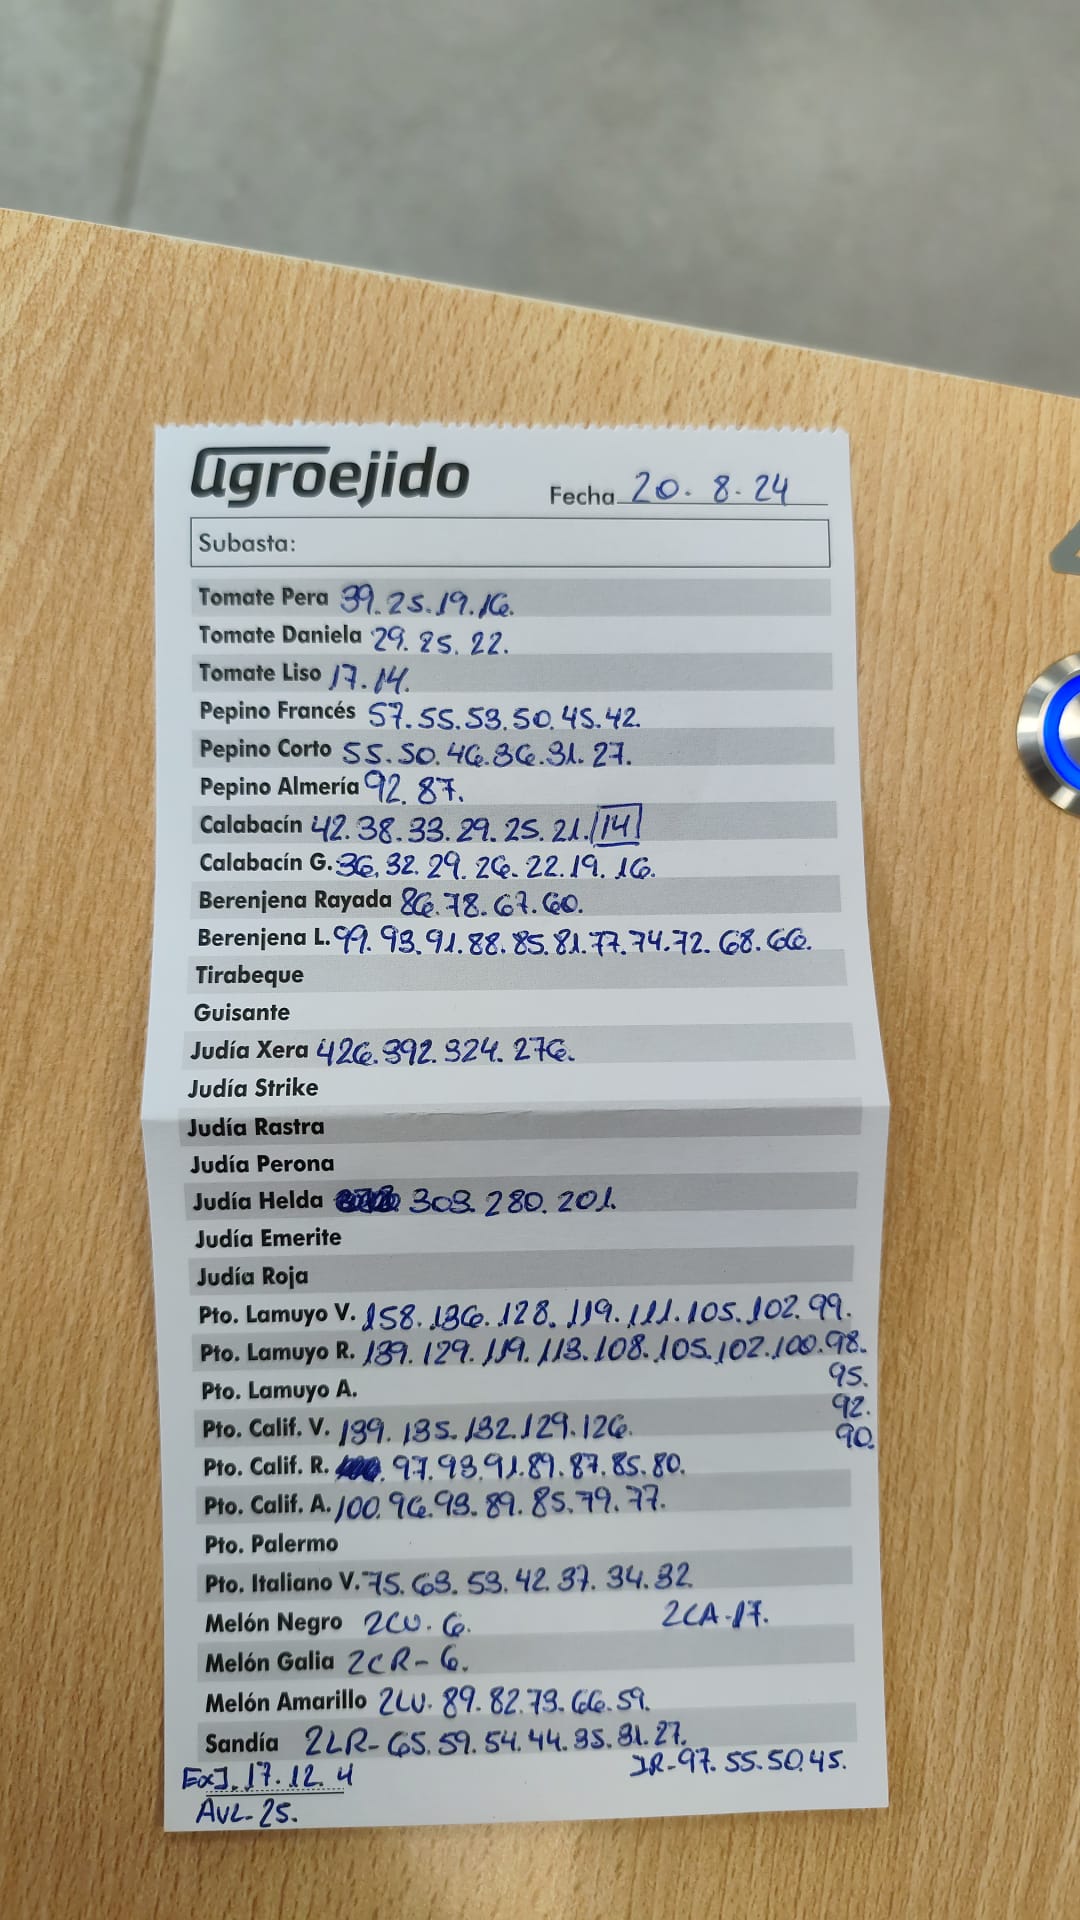 agroejido
Fecha 20. 8. 24
Subasta:
Tomate Pera 39. 25. 19. 16.
Tomate Daniela 29. 25. 22.
Tomate Liso 17. 14.
Pepino Francés 57. 55. 53. 50. 45. 42.
Pepino Corto 55. 50. 46. 36. 31. 27.
Pepino Almería 92. 87.
Calabacín 42. 38. 33. 29. 25. 21. 14
Calabacín G. 36. 32. 29. 26. 22. 19. 16.
Berenjena Rayada 86. 78. 67. 60.
Berenjena L. 99. 93. 91. 88. 85. 81. 77. 74. 72. 68. 66.
Tirabeque
Guisante
Judía Xera 426. 392. 324. 276.
Judía Strike
Judía Rastra
Judía Perona
Judía Helda 303. 280. 201.
Judía Emerite
Judía Roja
Pto. Lamuyo V. 158. 136. 128. 119. 111. 105. 102. 99.
Pto. Lamuyo R. 139. 129. 119. 113. 108. 105. 102. 100. 98.
95.
Pto. Lamuyo A.
92.
Pto. Calif. V. 139. 135. 132. 129. 126.
90.
Pto. Calif. R. 97. 93. 91. 89. 87. 85. 80.
Pto. Calif. A. 100. 96. 93. 89. 85. 79. 77.
Pto. Palermo
Pto. Italiano V. 75. 63. 53. 42. 37. 34. 32
Melón Negro 2CU. 6. 2CA-17.
Melón Galia 2CR- 6.
Melón Amarillo 2LV. 89. 82. 73. 66. 59.
Sandía 2LR- 65. 59. 54. 44. 35. 31. 27.
IR-97. 55. 50. 45.
17. 12. 4
AVL- 25.